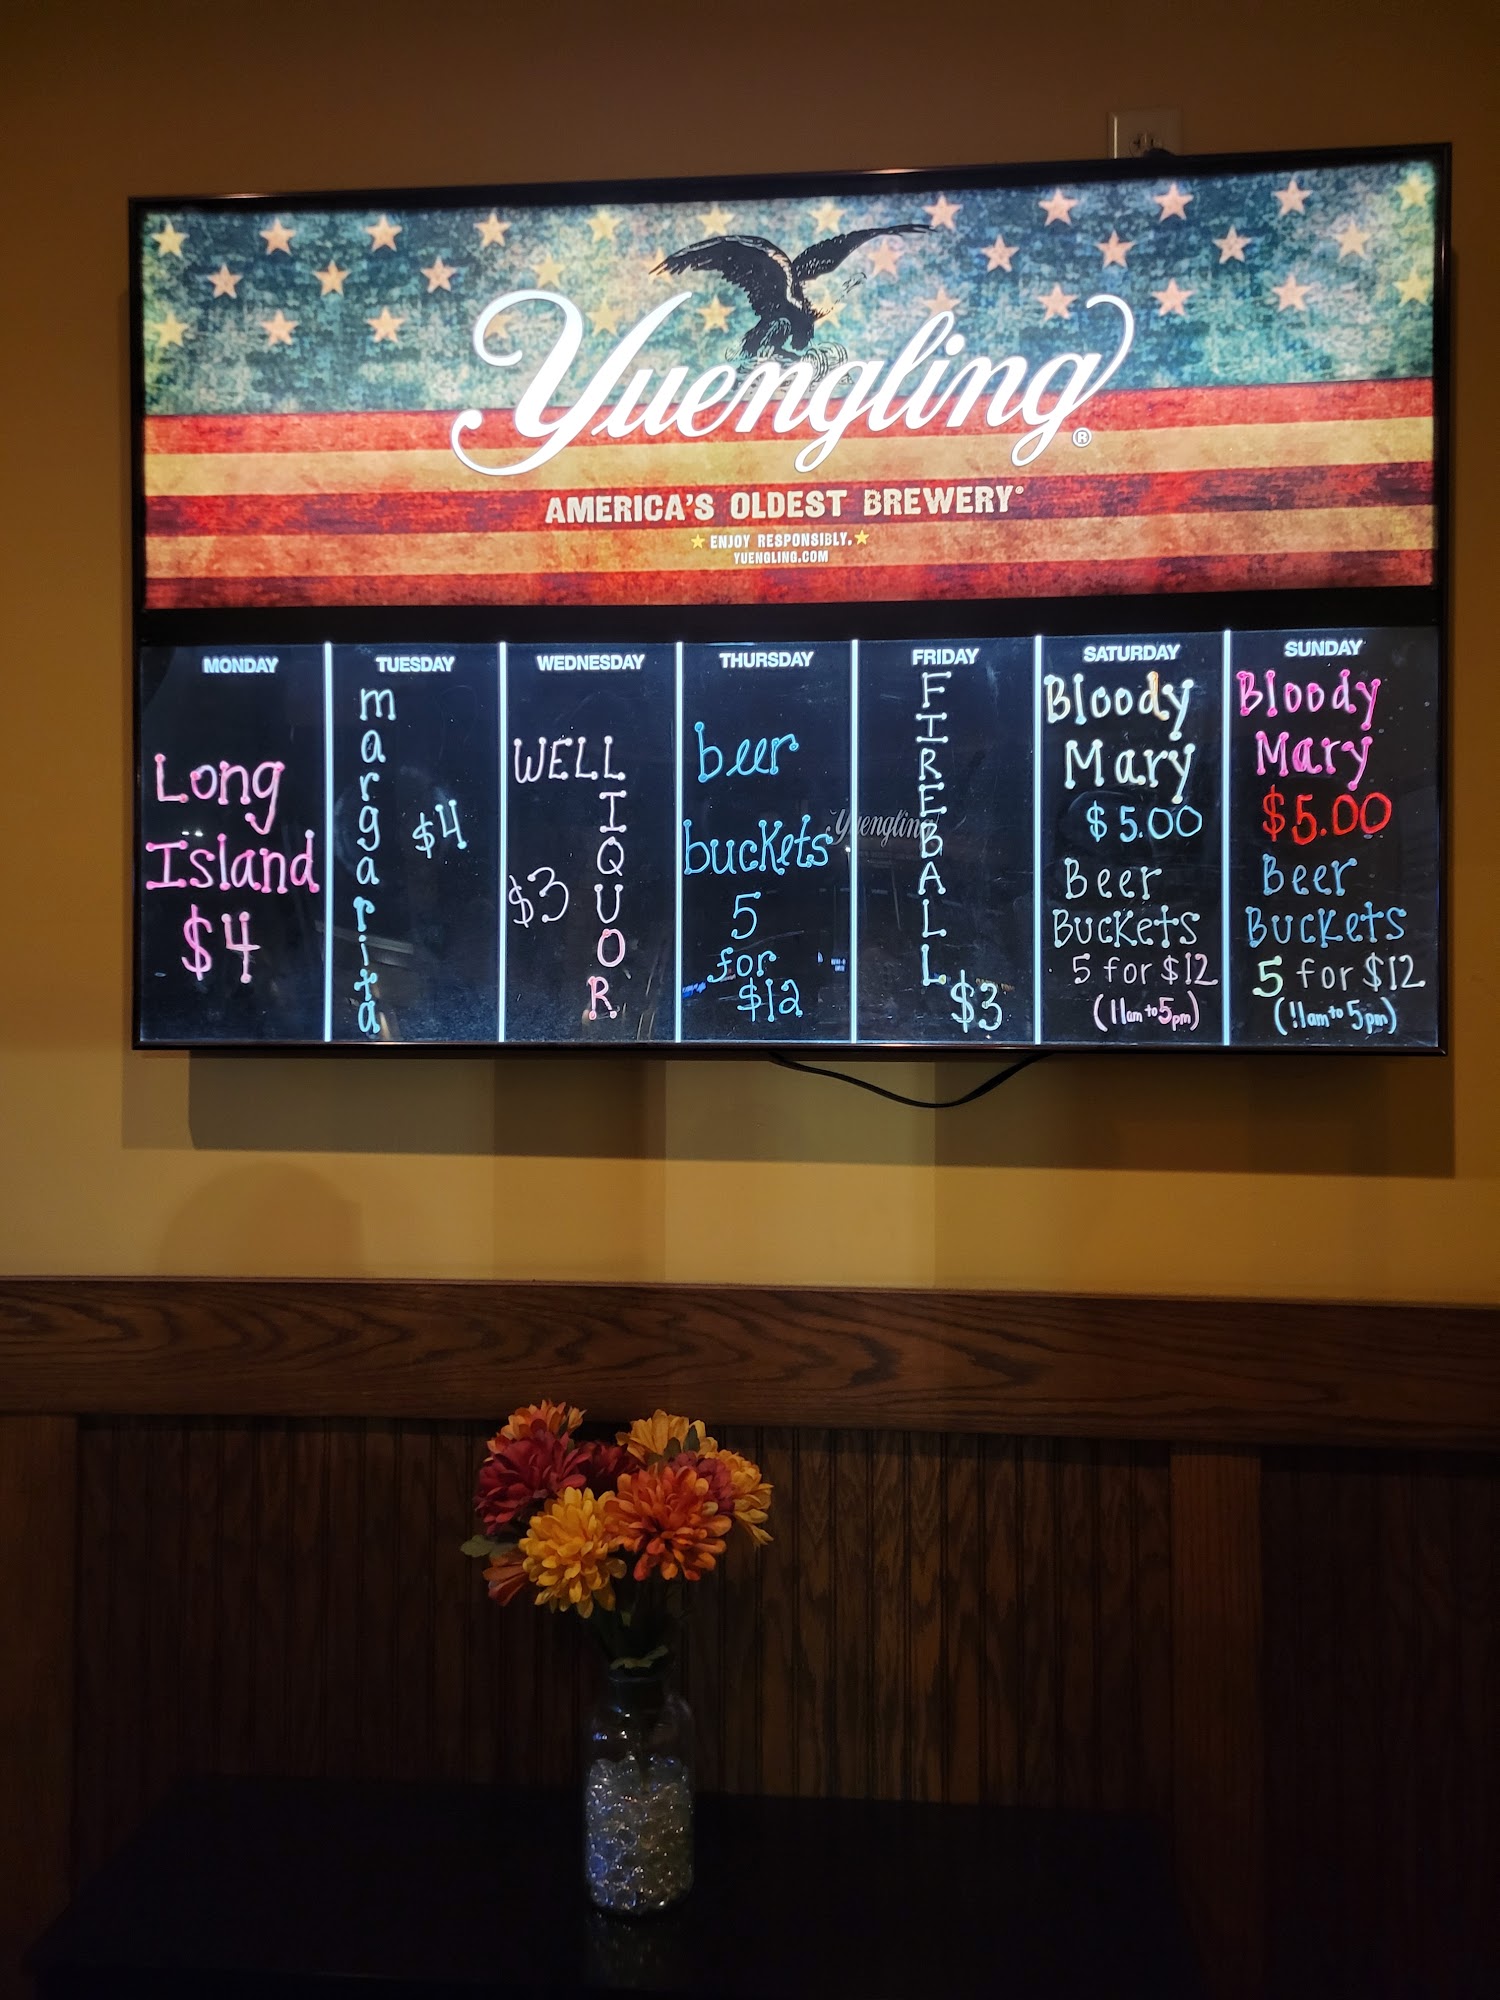 Yuengling®
AMERICA'S OLDEST BREWERY®
ENJOY RESPONSIBLY.
YUENGLING.COM
MONDAY
Long
Island
$4
TUESDAY
margarita
$4
WEDNESDAY
WELL
LIQUOR
$3
THURSDAY
beer
buckets
5
for
$12
FRIDAY
FIREBALL
$3
Yuengling
SATURDAY
Bloody
Mary
$5.00
Beer
Buckets
5 for $12
(11am to 5pm)
SUNDAY
Bloody
Mary
$5.00
Beer
Buckets
5 for $12
(11am to 5pm)